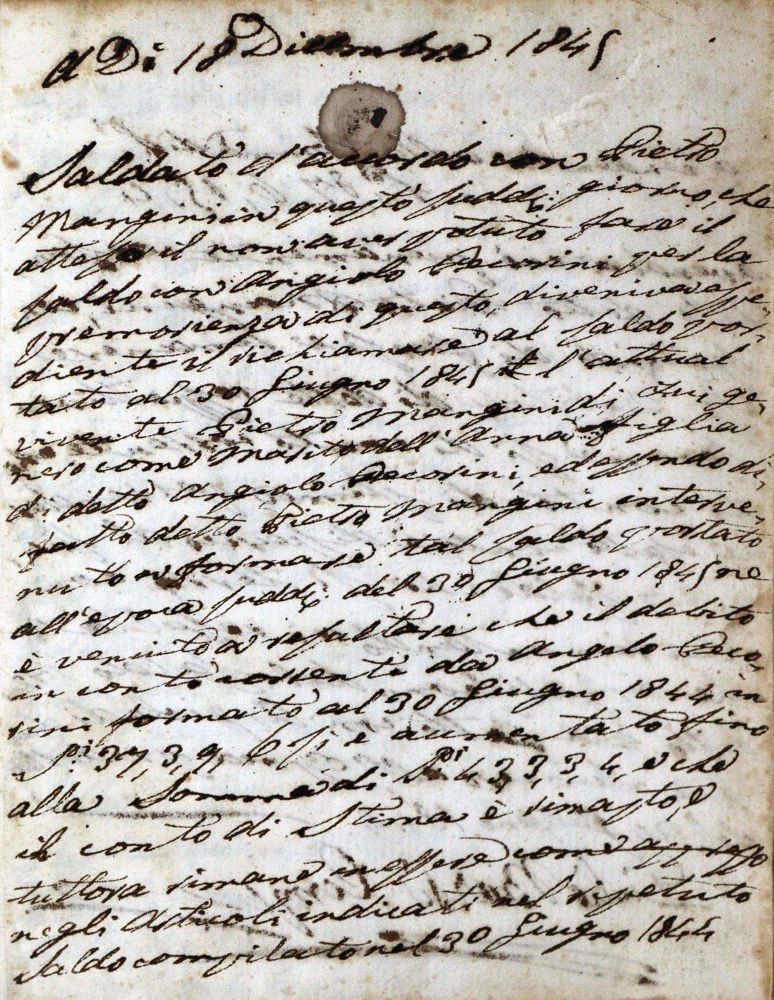 A Di 18 Dicembre 1845
Saldato d'accordo con Pietro
Mangini in questo sudd: giorno, che
atteso il non aver potuto fare il
saldo con Angiolo Pecorini per la
premorienza di questo, diveniva espe-
diente il richiamare al saldo por-
tato al 30 Giugno 1845 l'attual
vivente Pietro Mangini di lui ge-
nero come marito dell'Anna figlia
di detto Angiolo Pecorini, ed essendo di
fatto detto Pietro Mangini interve-
nuto a formare tal saldo portato
all'epoca sudd: del 30 Giugno 1845 ne
è venuto a resultare che il debito
in conto corrente da Angelo Peco-
rini formato al 30 Giugno 1844 in
Pi 37, 3, 9, 6 si è aumentato fino
alla Somma di Pi 43, 3, 3, 4, e che
il conto di Stima è rimasto, e
tuttora rimane in essere come appresso
negli Articoli indicati nel ripetuto
Saldo compilato nel 30 Giugno 1844